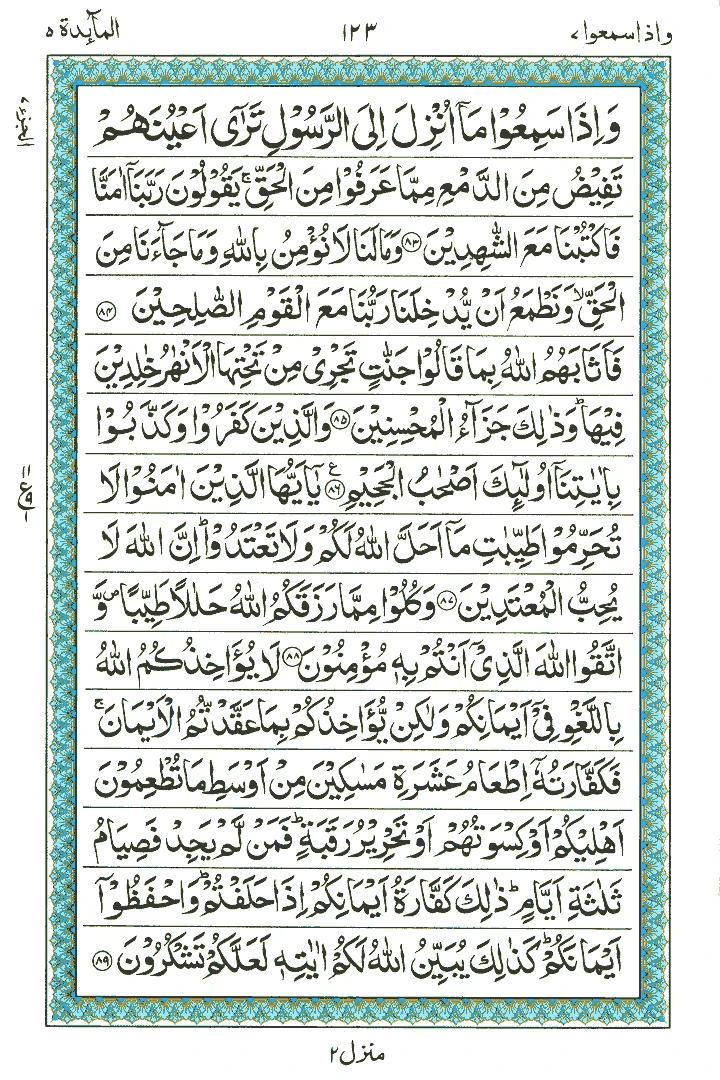 واذا سمعوا ٧ ١٢٣ المآئدة ٥
الجزء ٧
وَاِذَا سَمِعُوْا مَاۤ اُنْزِلَ اِلَى الرَّسُوْلِ تَرٰۤى اَعْيُنَهُمْ
تَفِيْضُ مِنَ الدَّمْعِ مِمَّا عَرَفُوْا مِنَ الْحَقِّ ۚ يَقُوْلُوْنَ رَبَّنَاۤ اٰمَنَّا
فَاكْتُبْنَا مَعَ الشّٰهِدِيْنَ ﴿٨٣﴾ وَمَا لَنَا لَا نُؤْمِنُ بِاللّٰهِ وَمَا جَآءَنَا مِنَ
الْحَقِّ ۙ وَنَطْمَعُ اَنْ يُّدْخِلَنَا رَبُّنَا مَعَ الْقَوْمِ الصّٰلِحِيْنَ ﴿٨٤﴾
فَاَثَابَهُمُ اللّٰهُ بِمَا قَالُوْا جَنّٰتٍ تَجْرِيْ مِنْ تَحْتِهَا الْاَنْهٰرُ خٰلِدِيْنَ
فِيْهَا ؕ وَذٰلِكَ جَزَآءُ الْمُحْسِنِيْنَ ﴿٨٥﴾ وَالَّذِيْنَ كَفَرُوْا وَكَذَّبُوْا
بِاٰيٰتِنَاۤ اُولٰٓئِكَ اَصْحٰبُ الْجَحِيْمِ ﴿٨٦﴾ ع يٰۤاَيُّهَا الَّذِيْنَ اٰمَنُوْا لَا
تُحَرِّمُوْا طَيِّبٰتِ مَاۤ اَحَلَّ اللّٰهُ لَكُمْ وَلَا تَعْتَدُوْا ؕ اِنَّ اللّٰهَ لَا
يُحِبُّ الْمُعْتَدِيْنَ ﴿٨٧﴾ وَكُلُوْا مِمَّا رَزَقَكُمُ اللّٰهُ حَلٰلًا طَيِّبًا ۪ وَّ
اتَّقُوا اللّٰهَ الَّذِيْۤ اَنْتُمْ بِهٖ مُؤْمِنُوْنَ ﴿٨٨﴾ لَا يُؤَاخِذُكُمُ اللّٰهُ
بِاللَّغْوِ فِيْۤ اَيْمَانِكُمْ وَلٰكِنْ يُّؤَاخِذُكُمْ بِمَا عَقَّدْتُّمُ الْاَيْمَانَ ۚ
فَكَفَّارَتُهٗۤ اِطْعَامُ عَشَرَةِ مَسٰكِيْنَ مِنْ اَوْسَطِ مَا تُطْعِمُوْنَ
اَهْلِيْكُمْ اَوْ كِسْوَتُهُمْ اَوْ تَحْرِيْرُ رَقَبَةٍ ؕ فَمَنْ لَّمْ يَجِدْ فَصِيَامُ
ثَلٰثَةِ اَيَّامٍ ؕ ذٰلِكَ كَفَّارَةُ اَيْمَانِكُمْ اِذَا حَلَفْتُمْ ؕ وَاحْفَظُوْۤا
اَيْمَانَكُمْ ؕ كَذٰلِكَ يُبَيِّنُ اللّٰهُ لَكُمْ اٰيٰتِهٖ لَعَلَّكُمْ تَشْكُرُوْنَ ﴿٨٩﴾
منزل ٢